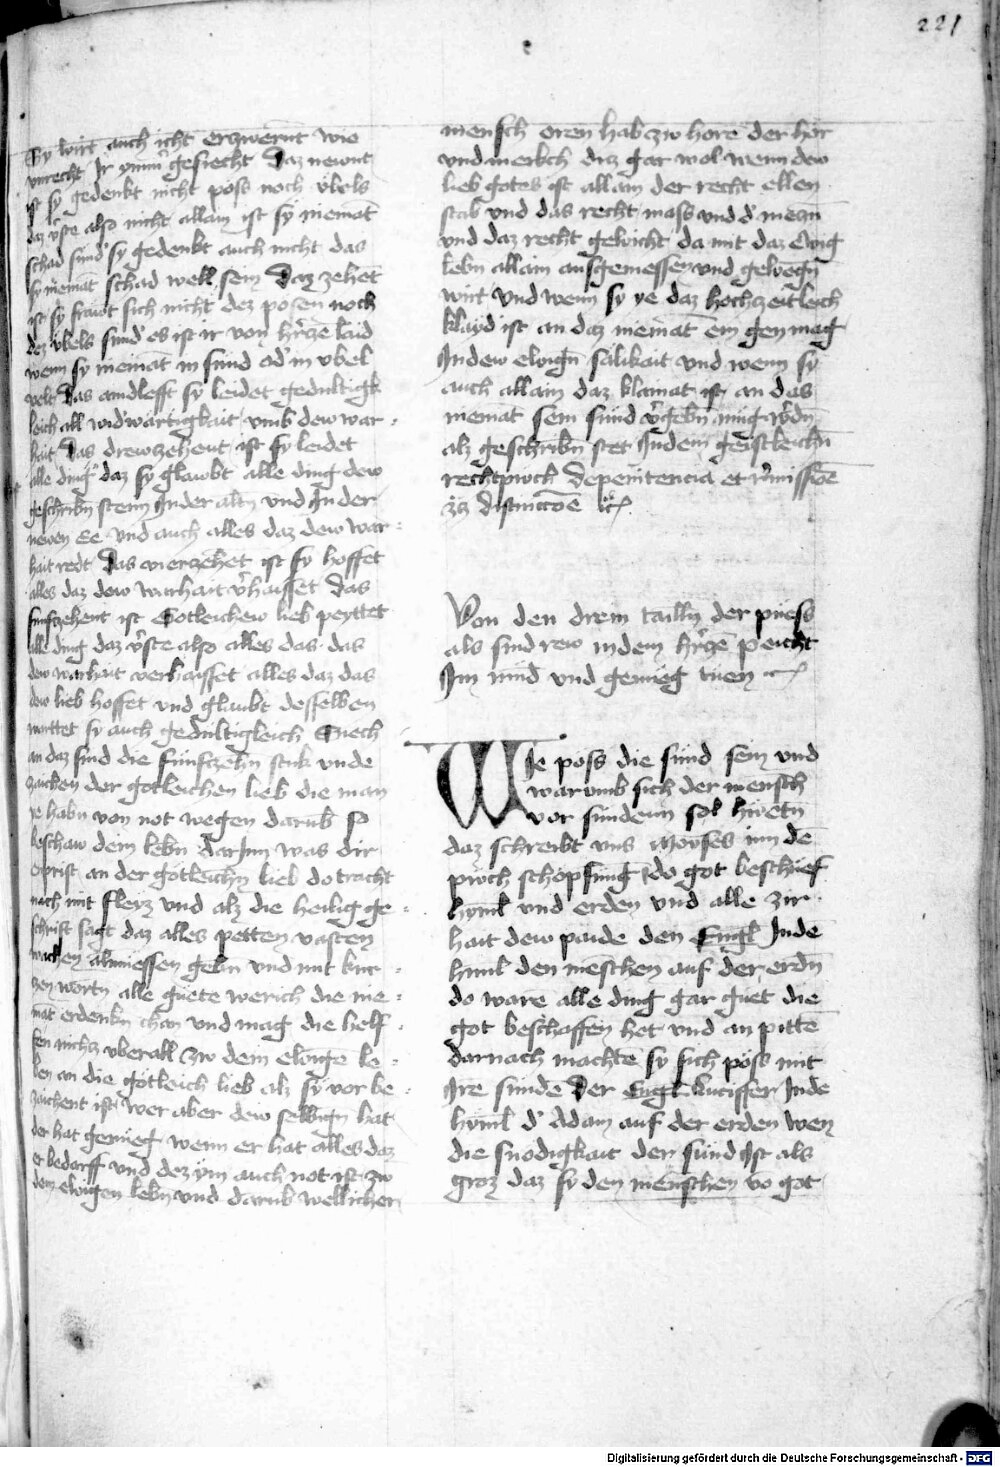 221
Sy wirt auch icht erzwernt wie
vnrecht Ir ymmer gesiecht Daz newnt
ist sy gedenkt nicht pöss noch übels
daz verste also nicht allain ist sy niemāt
schad sund' sy gedenkt auch nicht das
sy niemāt schad well sein Daz zehēt
ist sy frawt sich nicht dez posen noch
dez übels sund' es ist ir von h'rczē laid
wenn sy niemāt in sünd od' in vbel
velt Das aindlefft sy leidet gedultigk
leich all wid'wärtigkait vmb dew war
hait Das drewzehent ist sy leidet
alle ding daz sy glawbt alle ding dew
geschribn stenn Inder altn vnd Inder
newen Ee vnd auch alles daz dew war
hait redt Das vierzehēt ist sy hoffet
alles daz dew warhait v'haisset Das
funftzehent ist Gotleichew lieb peyttet
alle ding daz v'ste also alles das das
dew warhait verhaisset alles daz das
dew lieb hoffet vnd glaubt desselben
warttet sy auch gedultigleich Suech
an daz sind die fünftzehn stuk vnde
zaichen der gotleichen lieb die man
ye habn von not wegen darūb so
beschaw dein lebn darInn was dir
geprist an der götleichn lieb do tracht
nach mit fleyz vnd alz die heilig ge
schrift sagt daz alles petten vasten
wachen almüessen gebn vnd mit kur
zen wortn alle guete werich die nie
māt erdenkn chan vnd mag die helf
fen nichcz vberall zw dem ewigē le
ben an die götleich lieb alz sy vor be
zaichent ist wer aber dew selbign hat
der hat genueg wenn er hat alles daz
er bedarff vnd dez ym auch not ist zw
dem ewigen lebn vnd darūb wellicher
mensch oren hab zw horē der hör
vnd merkch dez gar wol wenn dew
lieb gotes ist allain der recht ellen
stab vnd das recht mass vnd d' meczn
vnd daz recht gewicht da mit daz Ewig
lebn allain ausgemessen vnd gewegn
wirt vnd wenn sy ye daz hochzeitleich
klayd ist an daz niemāt ein gen mag
Indew ewign sälikait vnd wenn sy
auch allain daz klainat ist an das
niemāt sein sünd v'gebn mug w'dn
alz geschribn stet Indem geistleichn
rechtpuech Depenitencia et r'missiōe
distinccōe etc
Von den drein tailln der puess
als sind rew indem h'rczē peicht
Im mūd vnd genueg tuen
Wie pöss die sünd sein vnd
warumb sich der mensch
vor sunden sol hüetn
daz schreibt vns Moyses inn dē
puech schöpfung do got beschuef
hyml vnd erden vnd alle zir
hait dew paide den Engl Inde
himl den mēschen auf der erdn
do ware alle ding gar guet die
got beschaffen het vnd an pittē
darnach machtē sy sich pöss mit
Irē sünde Der Engl lucifer Inde
hyml d' Adam auf der erden wen
die snödigkait der sünd Ist als
groz daz sy den menschen vō got
Digitalisierung gefördert durch die Deutsche Forschungsgemeinschaft - DFG